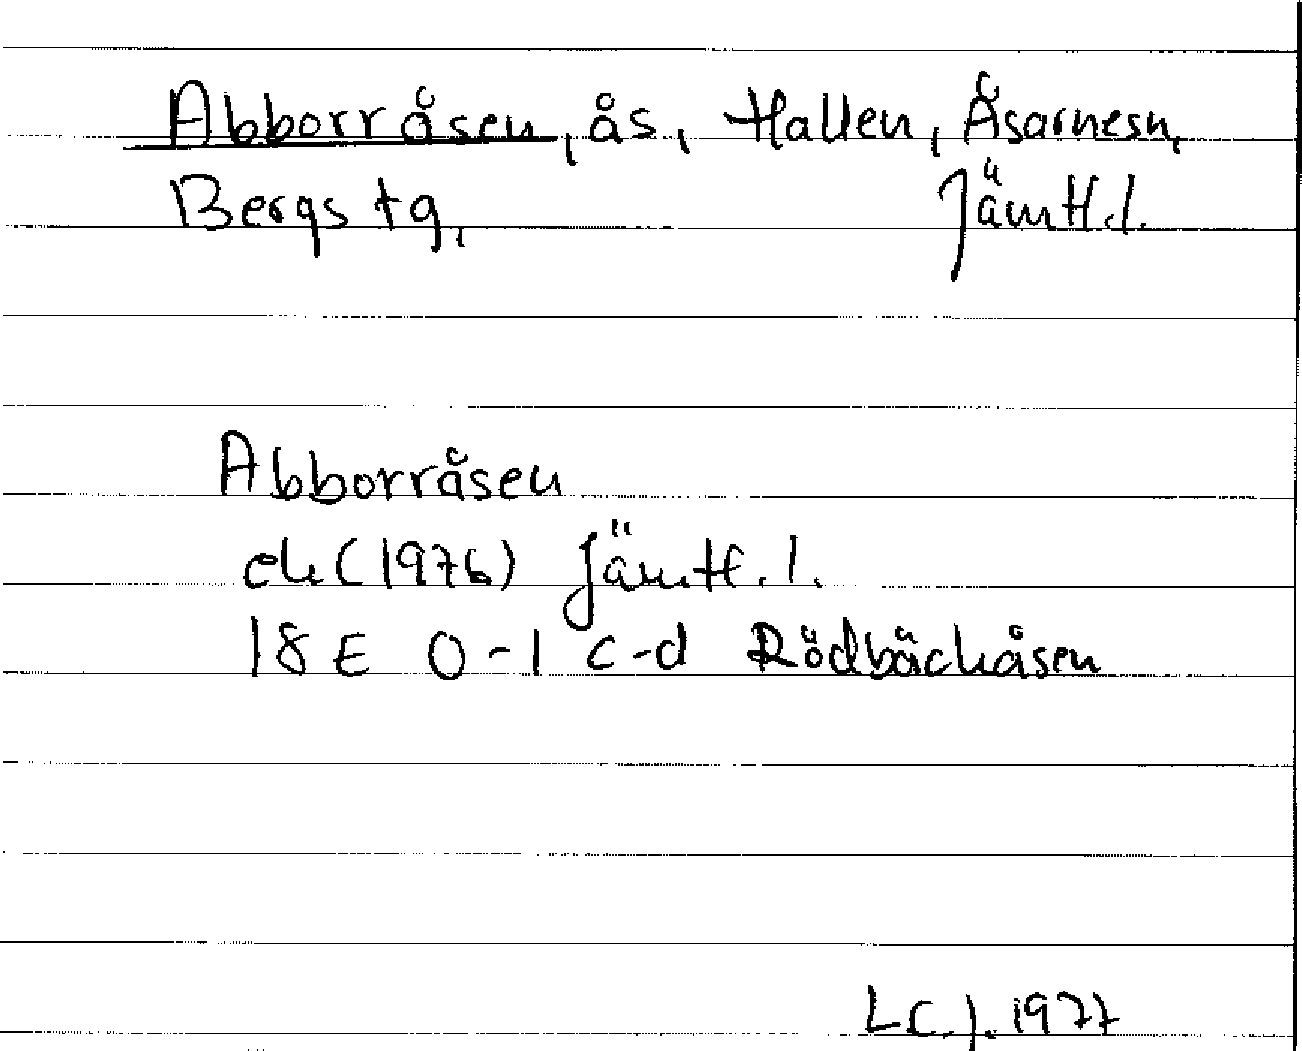 Abborråsen, ås, Hallen, Åsarnesn,
Bergs tg, Jämtl.l.
Abborråsen
ek (1976) Jämtl.l.
18 E 0-1 c-d Rödbäckåsen
LCJ. 1977